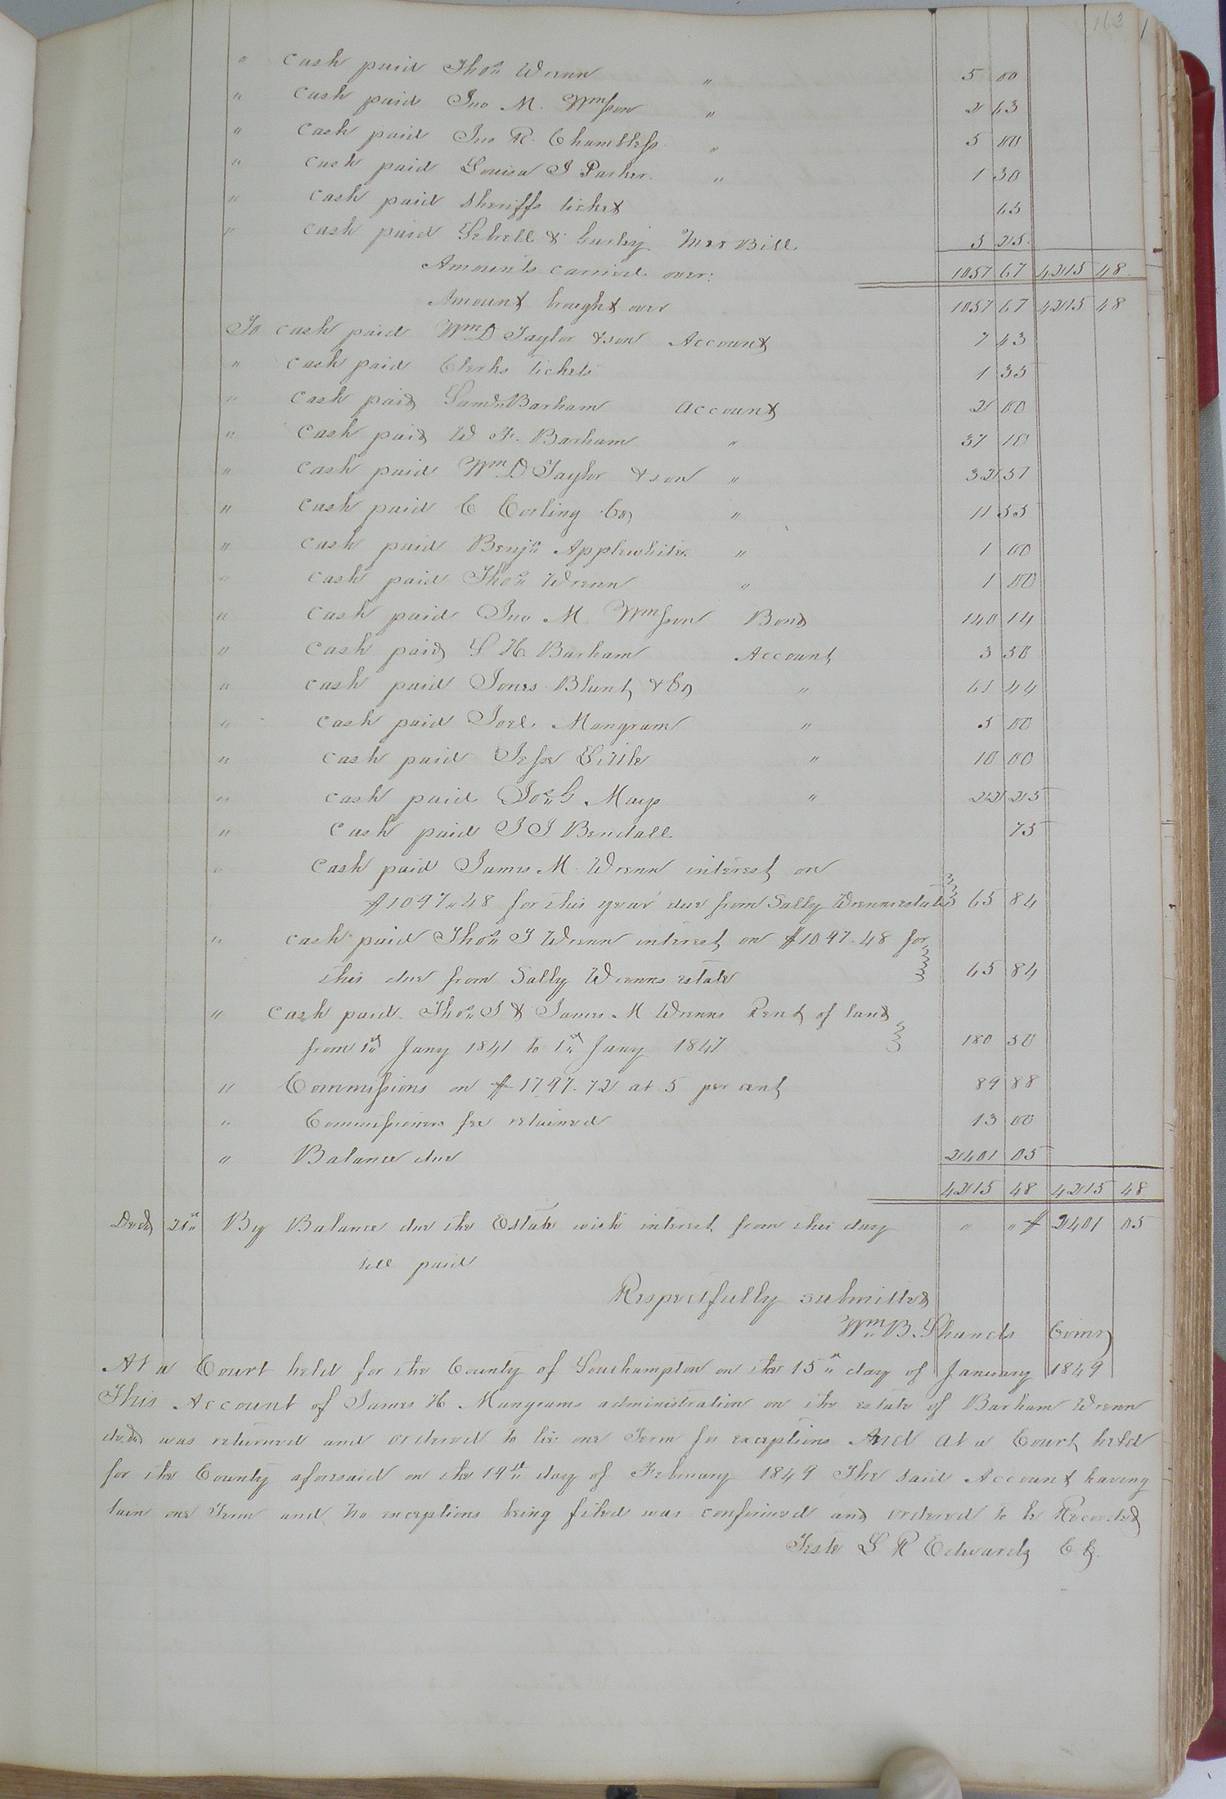 163
" cash paid Thos Wrenn " 5 00
" cash paid Jno M. Wmson " 2 63
" cash paid Jno R. Chambless " 5 00
" cash paid Louisa J Parker " 1 30
" cash paid Sheriffs ticket 63
" cash paid & Gurley Mer Bill 5 25
Amounts carried over: 1057 67 4215 48
Amount brought over 1057 67 4215 48
To cash paid Wm D Taylor & son Account 7 43
" cash paid Clerks tickets 1 35
" cash paid Saml Barham account 2 00
" cash paid W F. Barham " 37 10
" cash paid Wm D Taylor & son " 32 37
" cash paid C Corling Co " 11 55
" cash paid Benjn Applewhite " 1 00
" cash paid Thos Wrenn " 1 00
" cash paid Jno M. Wmson Bond 140 14
" cash paid S H. Barham Account 3 50
" cash paid Jones Blunt & Co " 61 44
" cash paid Joel Mangram " 5 00
" cash paid Jesse Little " 10 00
" cash paid Jos G Mays " 22 25
" cash paid J J Bendall 75
" cash paid James M. Wrenn interest on
$1097.48 for this year due from Sally Wrenns estate 65 84
" cash paid Thos J Wrenn interest on $1097.48 for
this due from Sally Wrenns estate 65 84
" cash paid Thos J & James M Wrenns Rent of land
from 1st Jany 1841 to 1st Jany 1847 180 50
" Commissions on $1797.72 at 5 per cent 89 88
" Commissioners fee retained 13 00
" Balance due 2401 05
4215 48 4215 48
Decd 21st By Balance due the Estate with interest from this day " " $ 2401 05
till paid
Respectfully submitted
Wm B. Shands Comr
At a Court held for the County of Southampton on the 15th day of January 1849
This Account of James H Mangrams administration on the estate of Barham Wrenn
decd was returned and ordered to lie one Term for exceptions And at a Court held
for the County aforesaid on the 19th day of February 1849 The said Account having
lain one Term and no exceptions being filed was confirmed and ordered to be Recorded
Teste L R Edwards C C